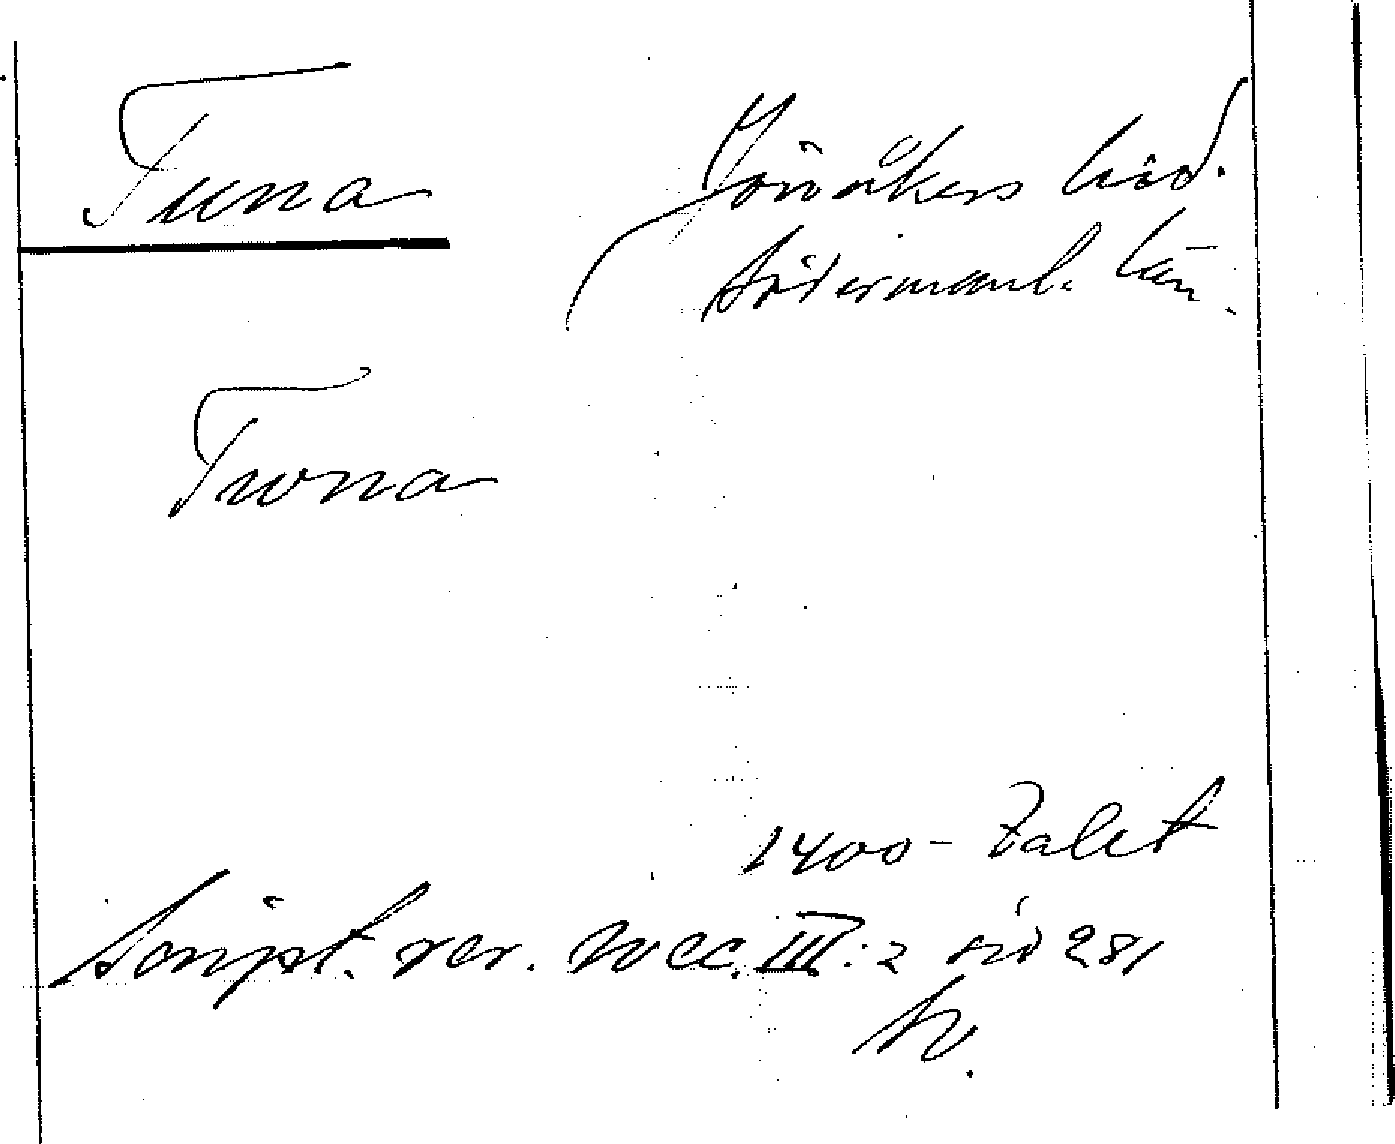 Tuna
Jönåkers härd.
Södermanl. län.
Twna
1400-talet
Script. rer. svec. III:2 sid 281